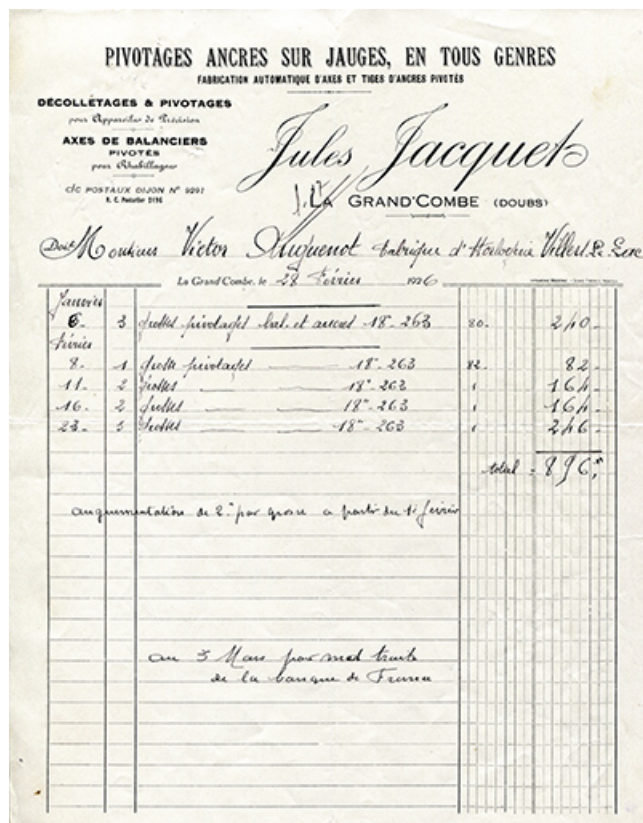 PIVOTAGES ANCRES SUR JAUGES, EN TOUS GENRES
FABRICATION AUTOMATIQUE D'AXES ET TIGES D'ANCRES PIVOTÉS
DÉCOLLETAGES & PIVOTAGES
pour Appareils de Précision
AXES DE BALANCIERS
PIVOTÉS
pour Rhabillages
C/C POSTAUX DIJON N° 9291
Jules Jacquet
LA GRAND'COMBE (DOUBS)
Doit Monsieur Victor Anguenot fabrique d'Horlogerie Villers-Le-Lac
La Grand'Combe, le 28 Février 1926
Janvier
6- 3 grosses pivotages bal. et ancres 18"-263 80- 240-
Février
8- 1 grosse pivotages 18"-263 82- 82-
11- 2 grosses 18"-263 164-
16- 2 grosses 18"-263 164-
23- 3 grosses 18"-263 246-
total = 896,
augumentation de 2. par grosse a partir du 1r février
au 5 Mars par mod traite
de la banque de France